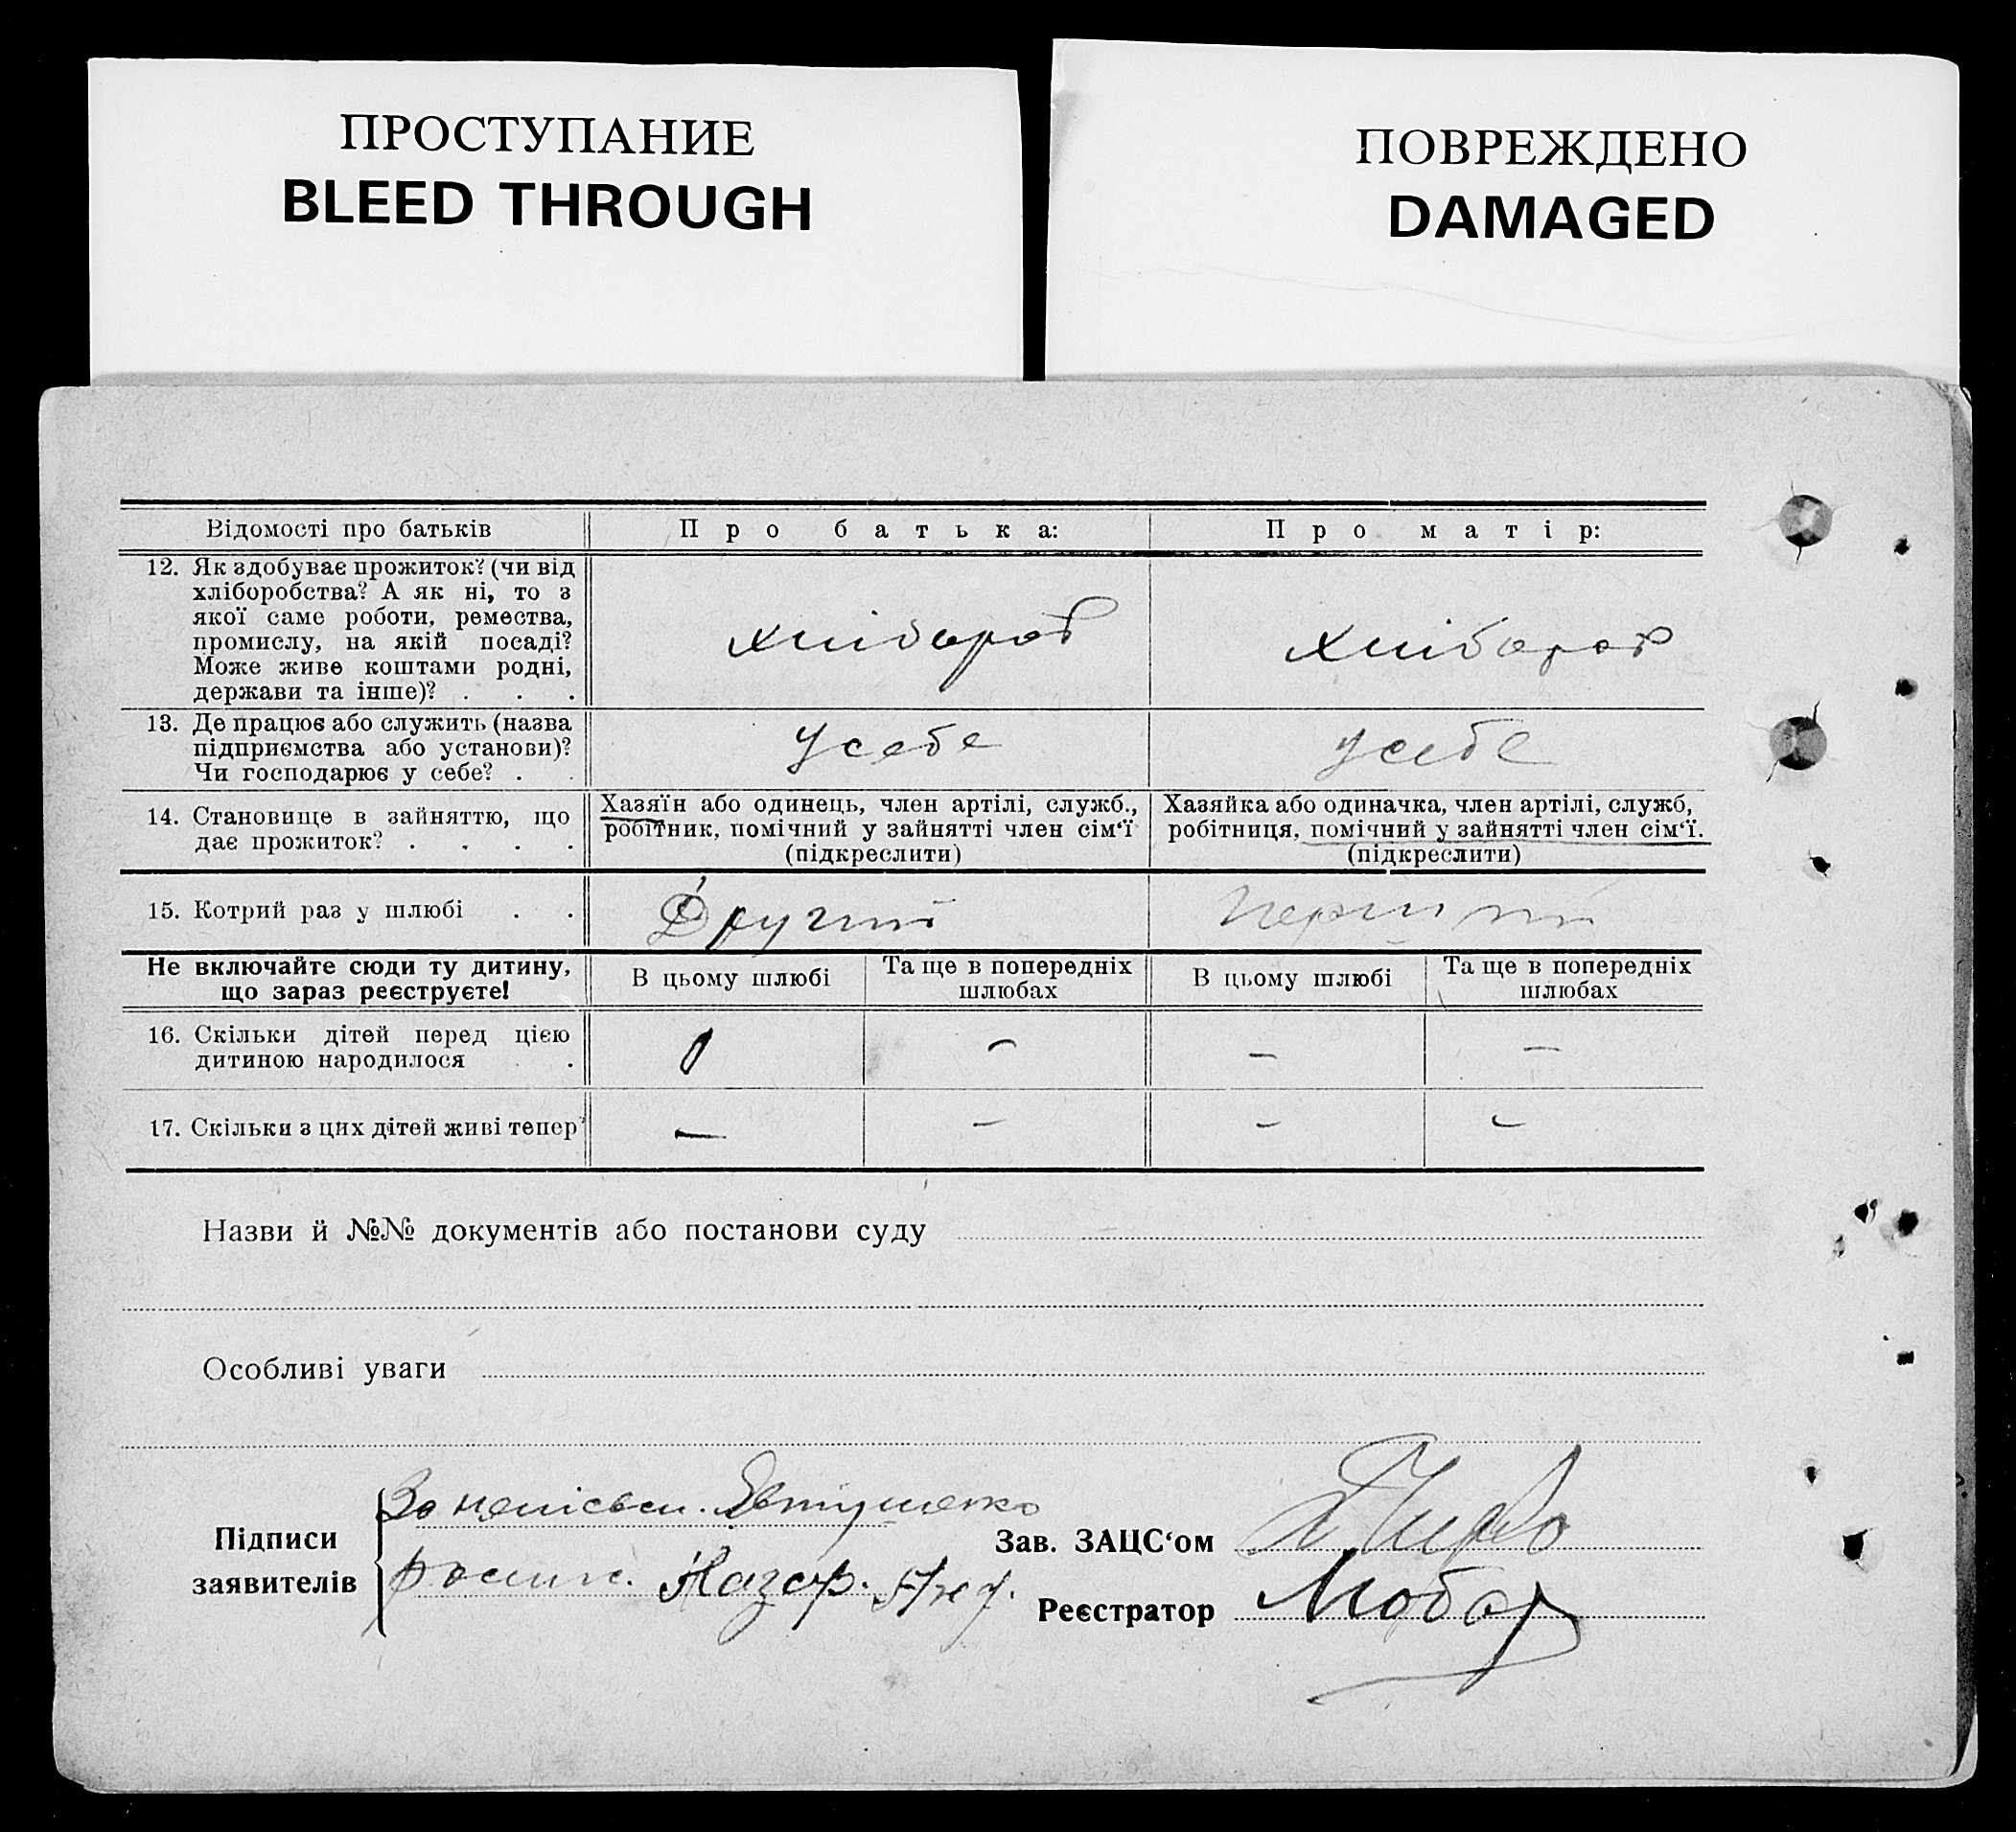 ПРОСТУПАНИЕ
BLEED THROUGH
ПОВРЕЖДЕНО
DAMAGED
Відомості про батьків
Про батька:
Про матір:
12. Як здобуває прожиток? (чи від
хліборобства? А як ні, то з
якої саме роботи, ремества,
промислу, на якій посаді?
Може живе коштами родні,
держави та інше)? . . .
хлібороб
хлібороб
13. Де працює або служить (назва
підприємства або установи)?
Чи господарює у себе? . .
У себе
у себе
14. Становище в зайняттю, що
дає прожиток? . . . .
Хазяїн або одинець, член артілі, служб.,
робітник, помічний у зайнятті член сім‘ї
(підкреслити)
Хазяйка або одиначка, член артілі, служб,
робітниця, помічний у зайнятті член сім‘ї.
(підкреслити)
15. Котрий раз у шлюбі . .
Другий
Перший
Не включайте сюди ту дитину,
що зараз реєструєте!
В цьому шлюбі
Та ще в попередніх
шлюбах
В цьому шлюбі
Та ще в попередніх
шлюбах
16. Скільки дітей перед цією
дитиною народилося .
– – –
17. Скільки з цих дітей живі тепер?
– – – –
Назви й №№ документів або постанови суду
Особливі уваги
Підписи
заявителів
За неписьм. Євтушенко
Зав. ЗАЦС‘ом
Реєстратор